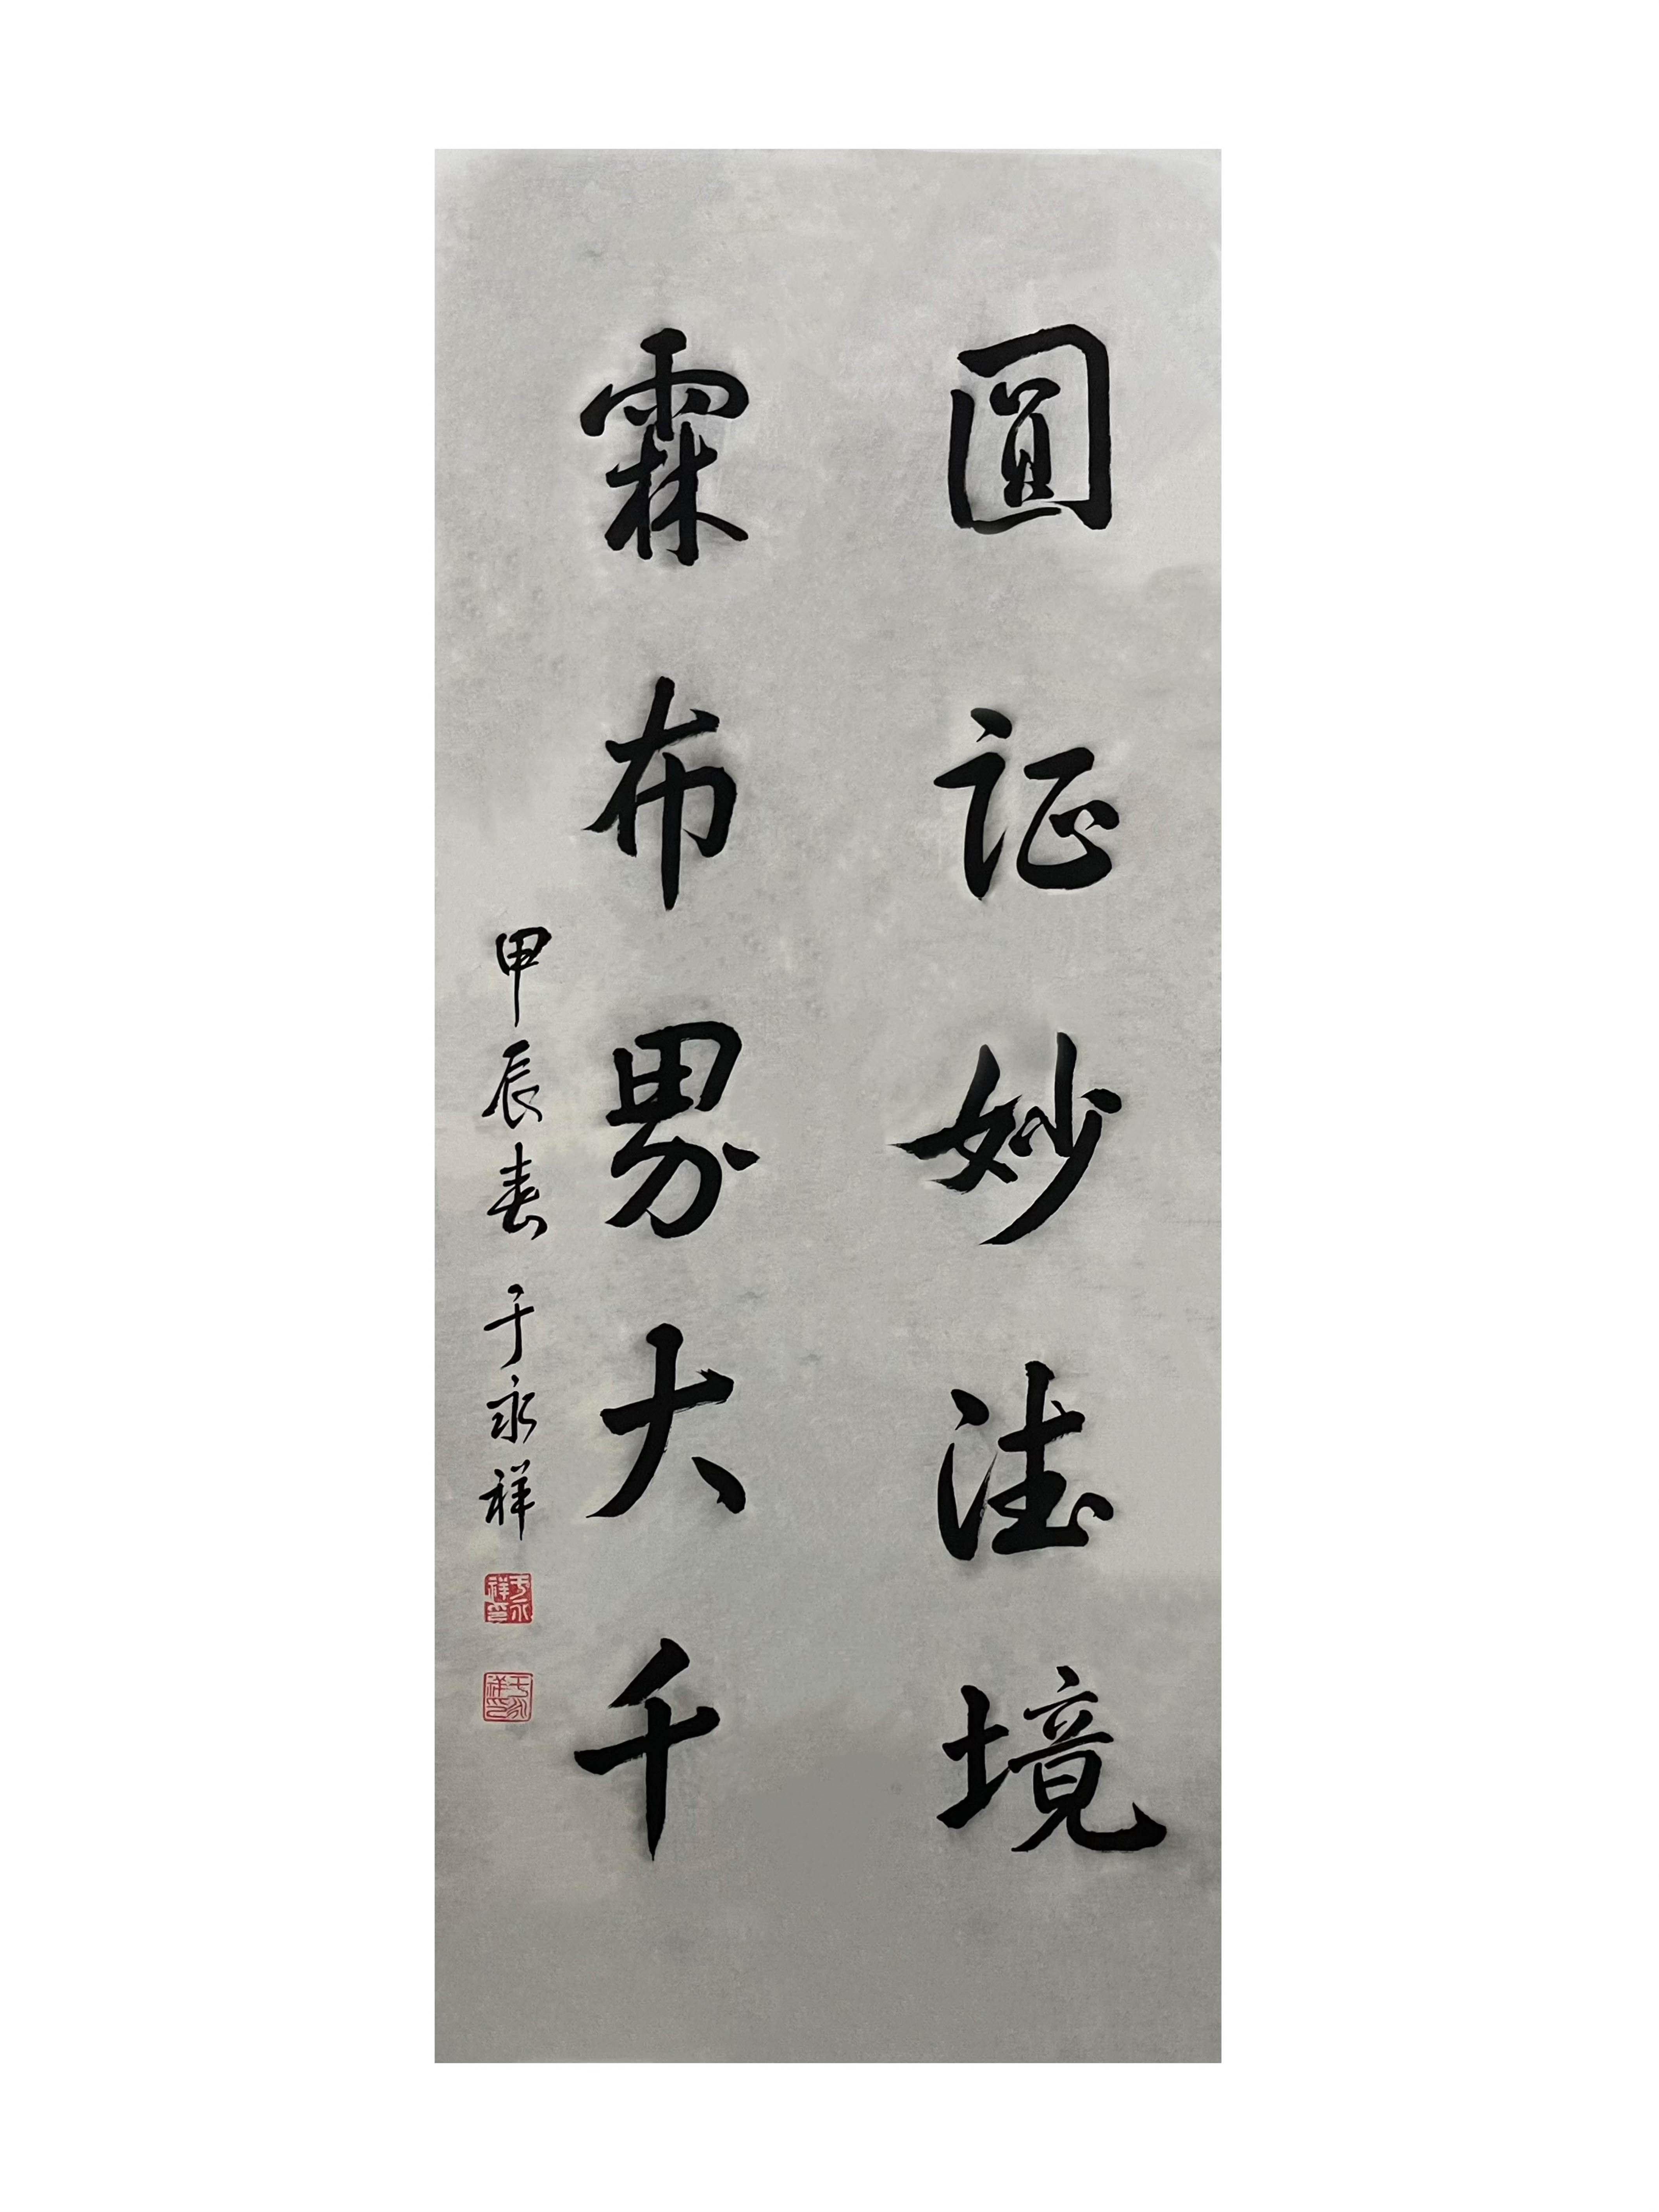 圆证妙法境
霖布界大千
甲辰春 于永祥
于永祥印
于永祥印